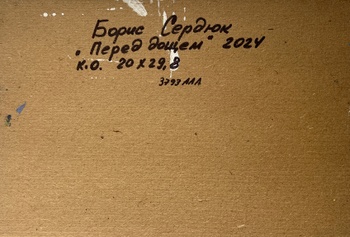 Борис Сердюк
"Перед дощем" 2024
К.О. 20 х 29,8
3793ЛЛЛ